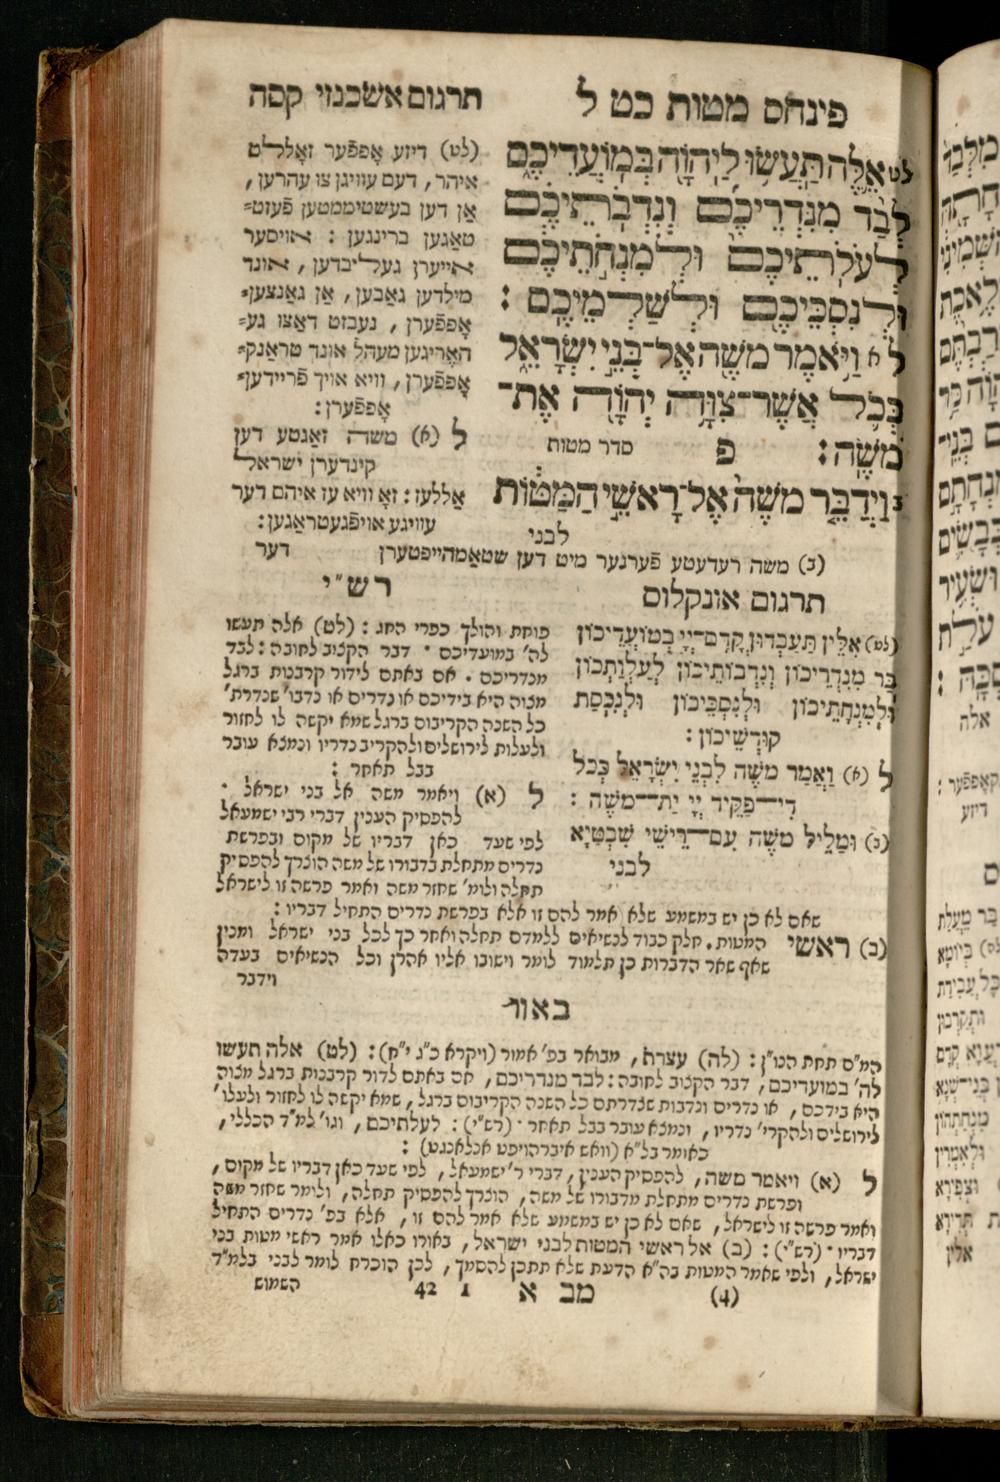 פינחס מטות כט ל
תרגום אשכנזי קסה
לט אֵ֛לֶּה תַּעֲשׂ֥וּ לַיהוָ֖ה בְּמוֹעֲדֵיכֶ֑ם
לְבַ֨ד מִנִּדְרֵיכֶ֜ם וְנִדְבֹתֵיכֶ֗ם
לְעֹלֹֽתֵיכֶם֙ וּלְמִנְחֹ֣תֵיכֶ֔ם
וּלְנִסְכֵּיכֶ֖ם וּלְשַׁלְמֵיכֶֽם :
ל א וַיֹּ֥אמֶר מֹשֶׁ֖ה אֶל־בְּנֵ֣י יִשְׂרָאֵ֑ל
כְּכֹ֛ל אֲשֶׁר־צִוָּ֥ה יְהוָ֖ה אֶת־
מֹשֶֽׁה : פ סדר מטות
ב וַיְדַבֵּ֤ר מֹשֶׁה֙ אֶל־רָאשֵׁ֣י הַמַּטּ֔וֹת
לבני
(לט) דיזע אָפּפֿער זאָללט
איהר, דעם עוויגן צו עהרען,
אַן דען בעשטיממטען פֿעזט=
טאַגען ברינגען : אויסער
אייערן געליבדען, אונד
מילדען גאַבען, אַן גאַנצען=
אָפּפֿערן, נעבזט דאַצו גע=
האֶריגען מעהל אונד טראַנק=
אָפּפֿערן, וויא אויך פֿריידען=
אָפּפֿערן :
ל (א) משה זאַגטע דען
קינדערן ישראל
אַללעז : זאָ וויא עז איהם דער
עוויגע אויפֿגעטראַגען :
(ב) משה רעדעטע פֿערנער מיט דען שטאַמהייפּטערן דער
תרגום אונקלוס
(לט) אִלֵּין תַּעְבְּדוּן קֳדָם־יְיָ בְּמוֹעֲדֵיכוֹן
בַּר מִנִּדְרֵיכוֹן וְנִדְבוֹתֵיכוֹן לַעֲלָוַתְכוֹן
וּלְמִנְחָתֵיכוֹן וּלְנִסְכֵּיכוֹן וּלְנִכְסַת
קוּדְשֵׁיכוֹן :
ל (א) וַאֲמַר מֹשֶׁה לִבְנֵי יִשְׂרָאֵל כְּכֹל
דִּי־פַקֵּיד יְיָ יַת־מֹשֶׁה :
(ב) וּמַלִּיל מֹשֶׁה עִם־רֵישֵׁי שִׁבְטַיָּא
לבני
רש"י
פוחת והולך כפרי החג : (לט) אלה תעשו
לה' במועדיכם . דבר הקצוב לחובה : לבד
מנדריכם . אם באתם לידור קרבנות ברגל
מצוה היא בידיכם או נדרים או נדבו' שנדרת'
כל השנה הקריבום ברגל שמא יקשה לו לחזור
ולעלות לירושלים ולהקריב נדריו ונמצא עובר
בבל תאחר :
ל (א) ויאמר משה אל בני ישראל .
להפסיק הענין דברי רבי ישמעאל
לפי שעד כאן דבריו של מקום ובפרשת
נדרים מתחלת בדבורו של משה הוצרך להפסיק
תחלה ולומ' שחזר משה ואמר פרשה זו לישראל
שאם לא כן יש במשמע שלא אמר להם זו אלא בפרשת נדרים התחיל דבריו :
(ב) ראשי המטות . חלק כבוד לנשיאים ללמדם תחלה ואחר כך לכל בני ישראל ומנין
שאף שאר הדברות כן תלמוד לומר וישובו אליו אהרן וכל הנשיאים בעדה
וידבר
באור
המ"ם תחת הנו"ן : (לה) עצרת, מבואר בפ' אמור (ויקרא כ"ג י"ח) : (לט) אלה תעשו
לה' במועדיכם, דבר הקצוב לחובה : לבד מנדריכם, אם באתם לדור קרבנות ברגל מצוה
היא בידכם, או נדרים ונדבות שנדרתם כל השנה הקריבום ברגל, שמא יקשה לו לחזור ולעלו'
לירושלים ולהקרי' נדריו, ונמצא עובר בבל תאחר . (רש"י) : לעלתיכם, וגו' למ"ד הכללי,
כאומר בל"א (וואש איברהויפט אנלאנגט) :
ל (א) ויאמר משה, להפסיק הענין, דברי ר' ישמעאל, לפי שעד כאן דבריו של מקום,
ופרשת נדרים מתחלת מדבורו של משה, הוצרך להפסיק תחלה, ולומר שחזר משה
ואמר פרשה זו לישראל, שאם לא כן יש במשמע שלא אמר להם זו, אלא בפ' נדרים התחיל
דבריו . (רש"י) : (ב) אל ראשי המטות לבני ישראל, באורו כאלו אמר ראשי מטות בני
ישראל, ולפי שאמר המטות בה"א הדעת שלא תתכן להסמך, לכן הוכרח לומר לבני בלמ"ד
השמוש
(4) מב א 1 42